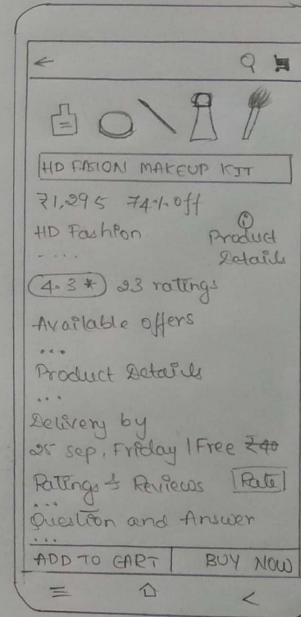 HD FASION MAKEUP KIT
₹1,295 74% off
HD Fashion
i
Product
Details
....
4.3 * 23 ratings
Available offers
...
Product Details
...
Delivery by
25 sep, Friday | Free ₹40
Ratings & Reviews Rate
...
Question and Answer
...
ADD TO CART BUY NOW